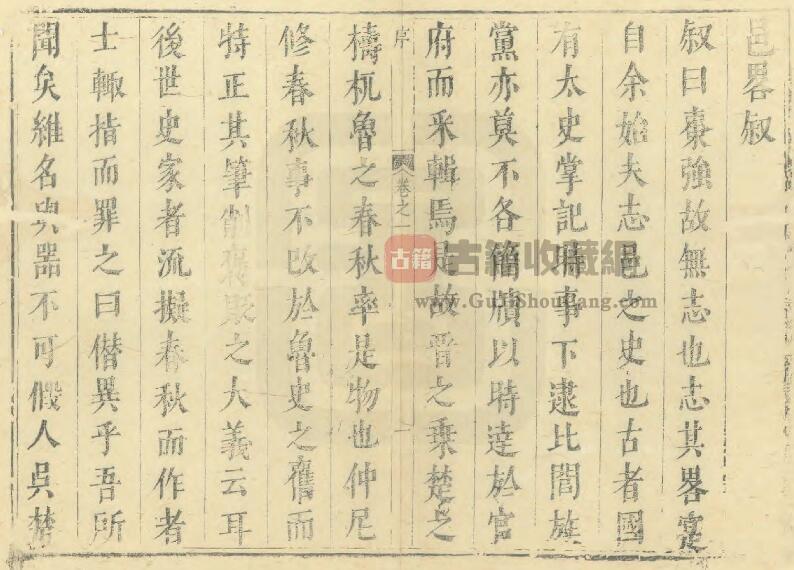 邑畧叙
叙曰棗強故無志也志其畧寔
自余始夫志邑之史也古者國
有太史掌記時事下逮比閭族
黨亦莫不各籍牘以時達於官
府而采輯焉是故晋之乗楚之
序 卷之一 一
檮杌魯之春秋率是物也仲尼
修春秋事不改於魯史之舊而
特正其筆削褒貶之大義云耳
後世史家者流擬春秋而作者
士輙指而罪之曰僣異乎吾所
聞矣維名與器不可假人吳楚
古籍 古籍收藏網
www.GuJiShouCang.com